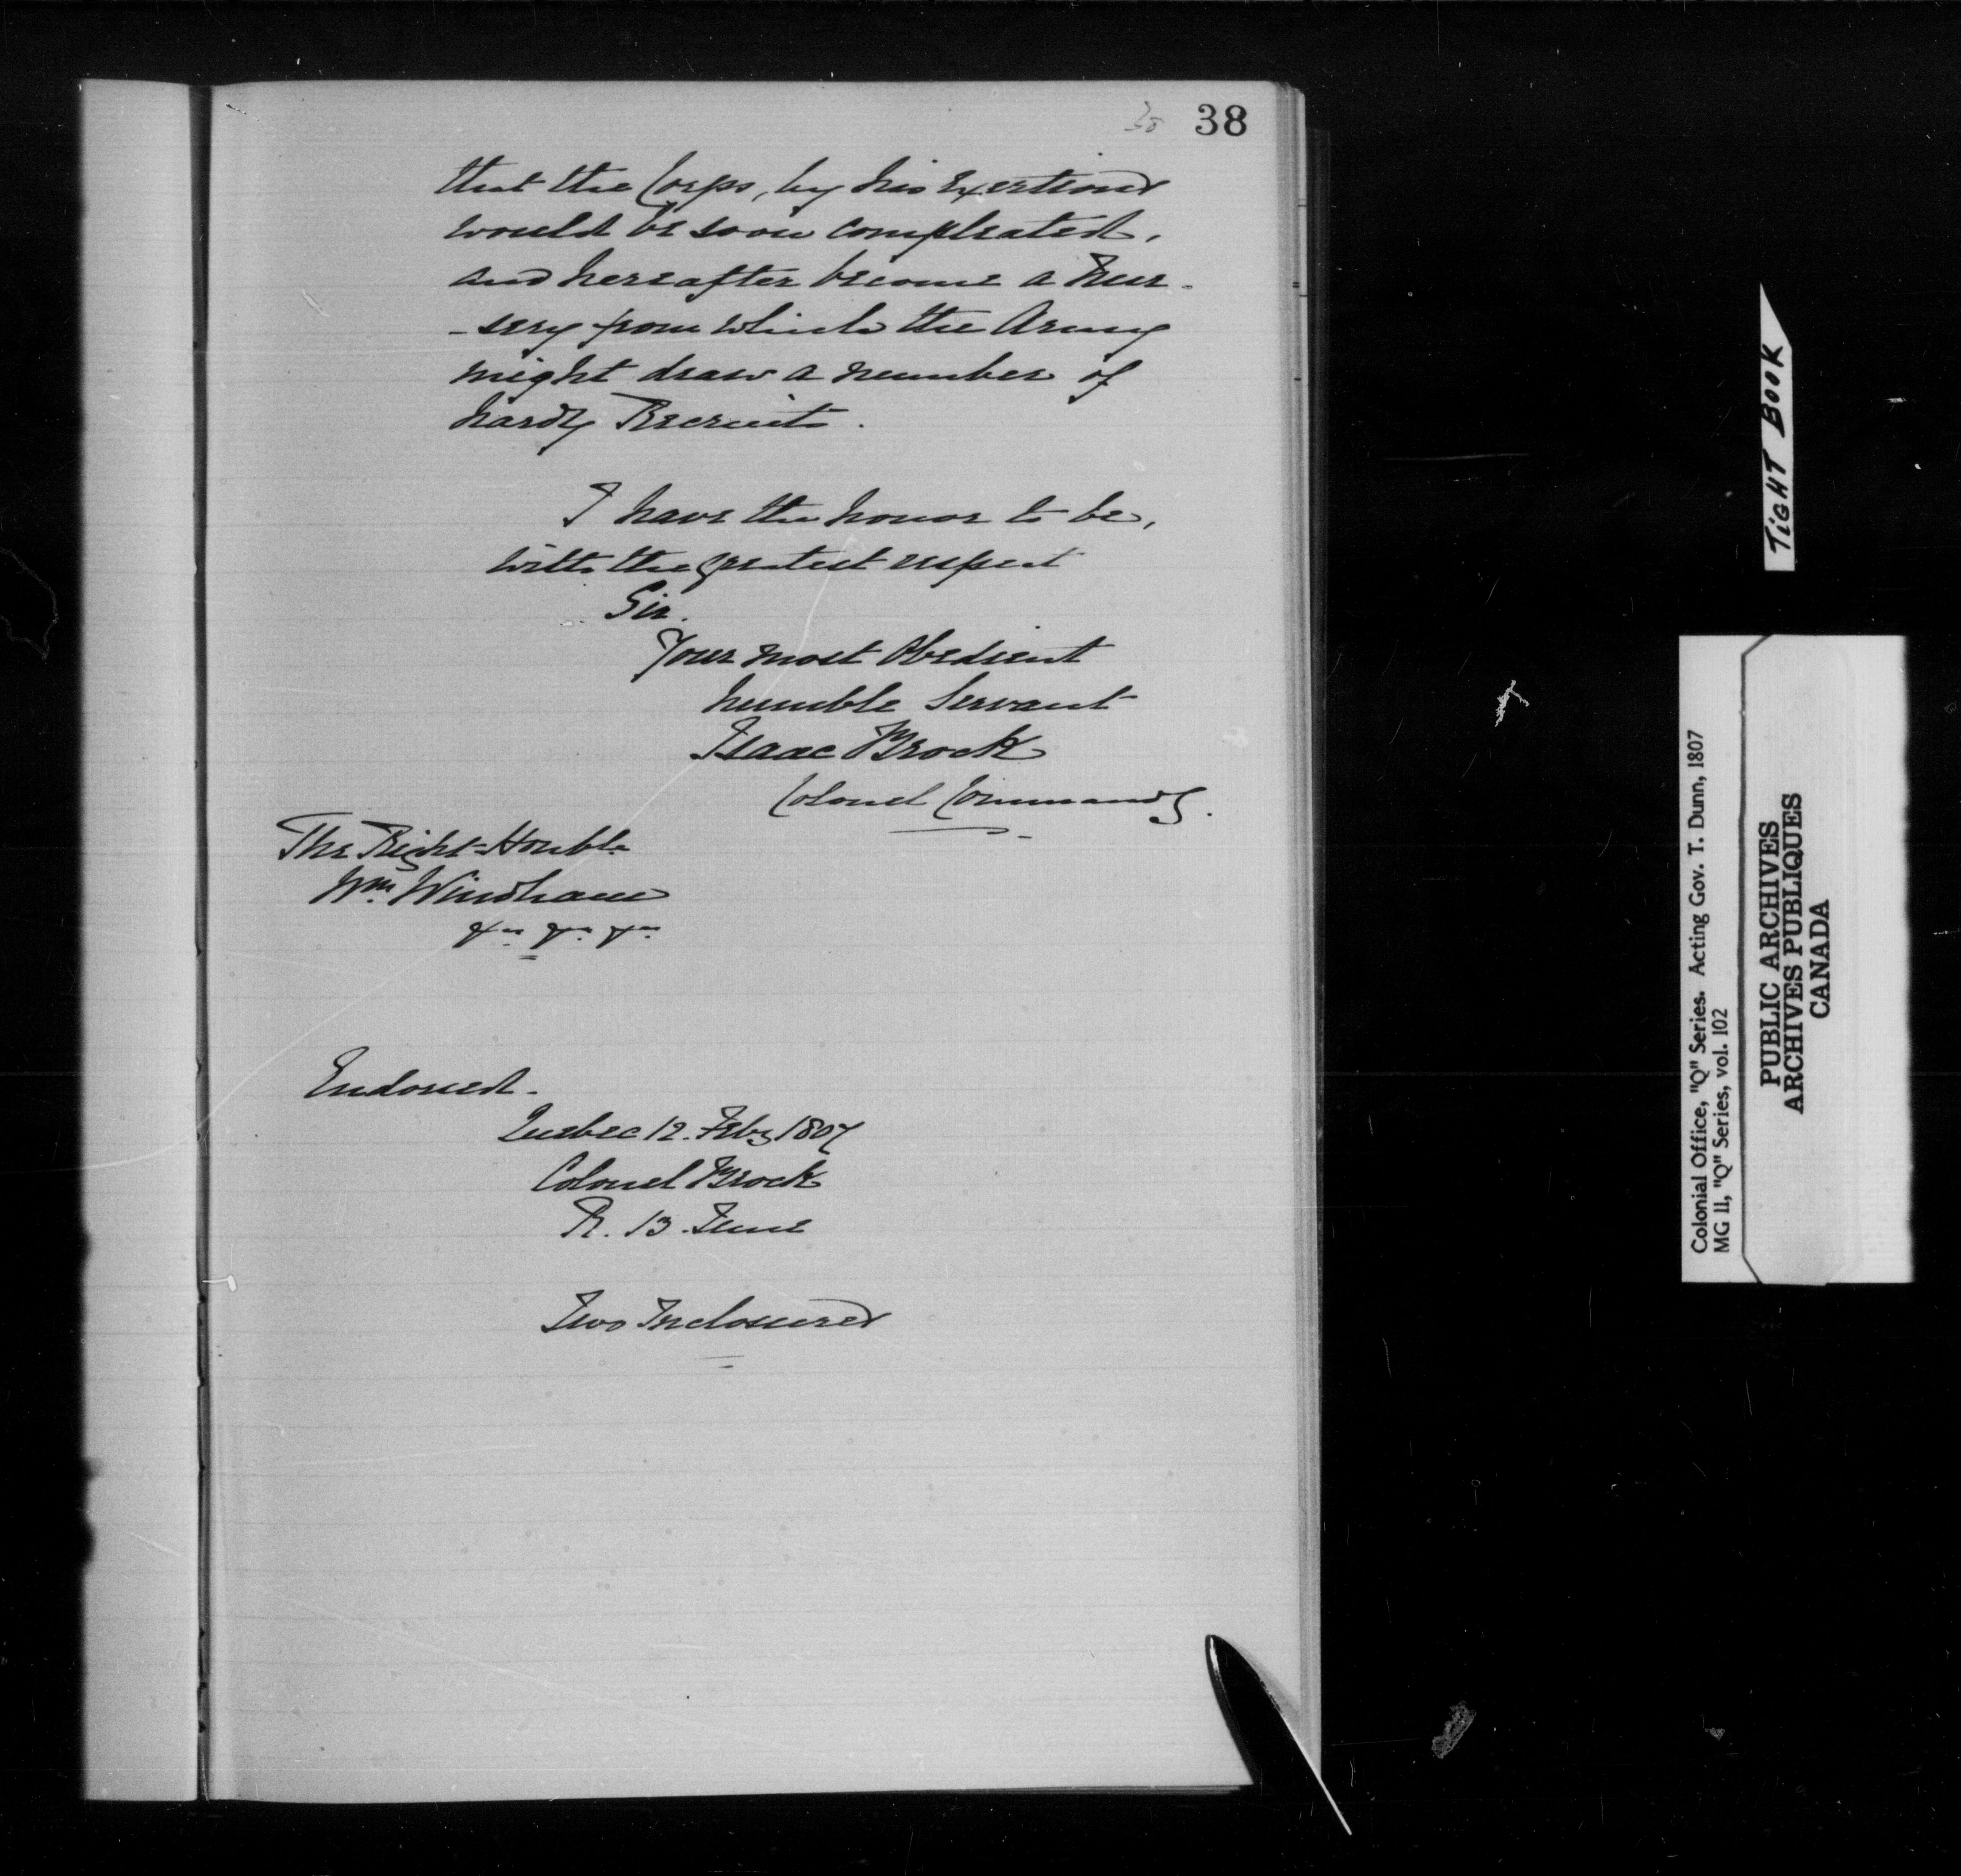 38 38
that the Corps, by his Exertions
would be soon compleated,
and hereafter become a Nur-
-sery from which the Army
might draw a number of
hardy Recruits.
I have the honor to be,
with the greatest respect
Sir.
Your most Obedient
humble Servant
Isaac Brock
Colonel Commandg.
The Right Honble
Wm. Windham
&c &c &c
Endorsed.
Quebec 12. Feby 1807
Colonel Brock
R. 13 June
Two Inclosures
TIGHT BOOK
Colonial Office, "Q" Series. Acting Gov. T. Dunn, 1807
MG 11, "Q" Series, vol. 102
PUBLIC ARCHIVES
ARCHIVES PUBLIQUES
CANADA